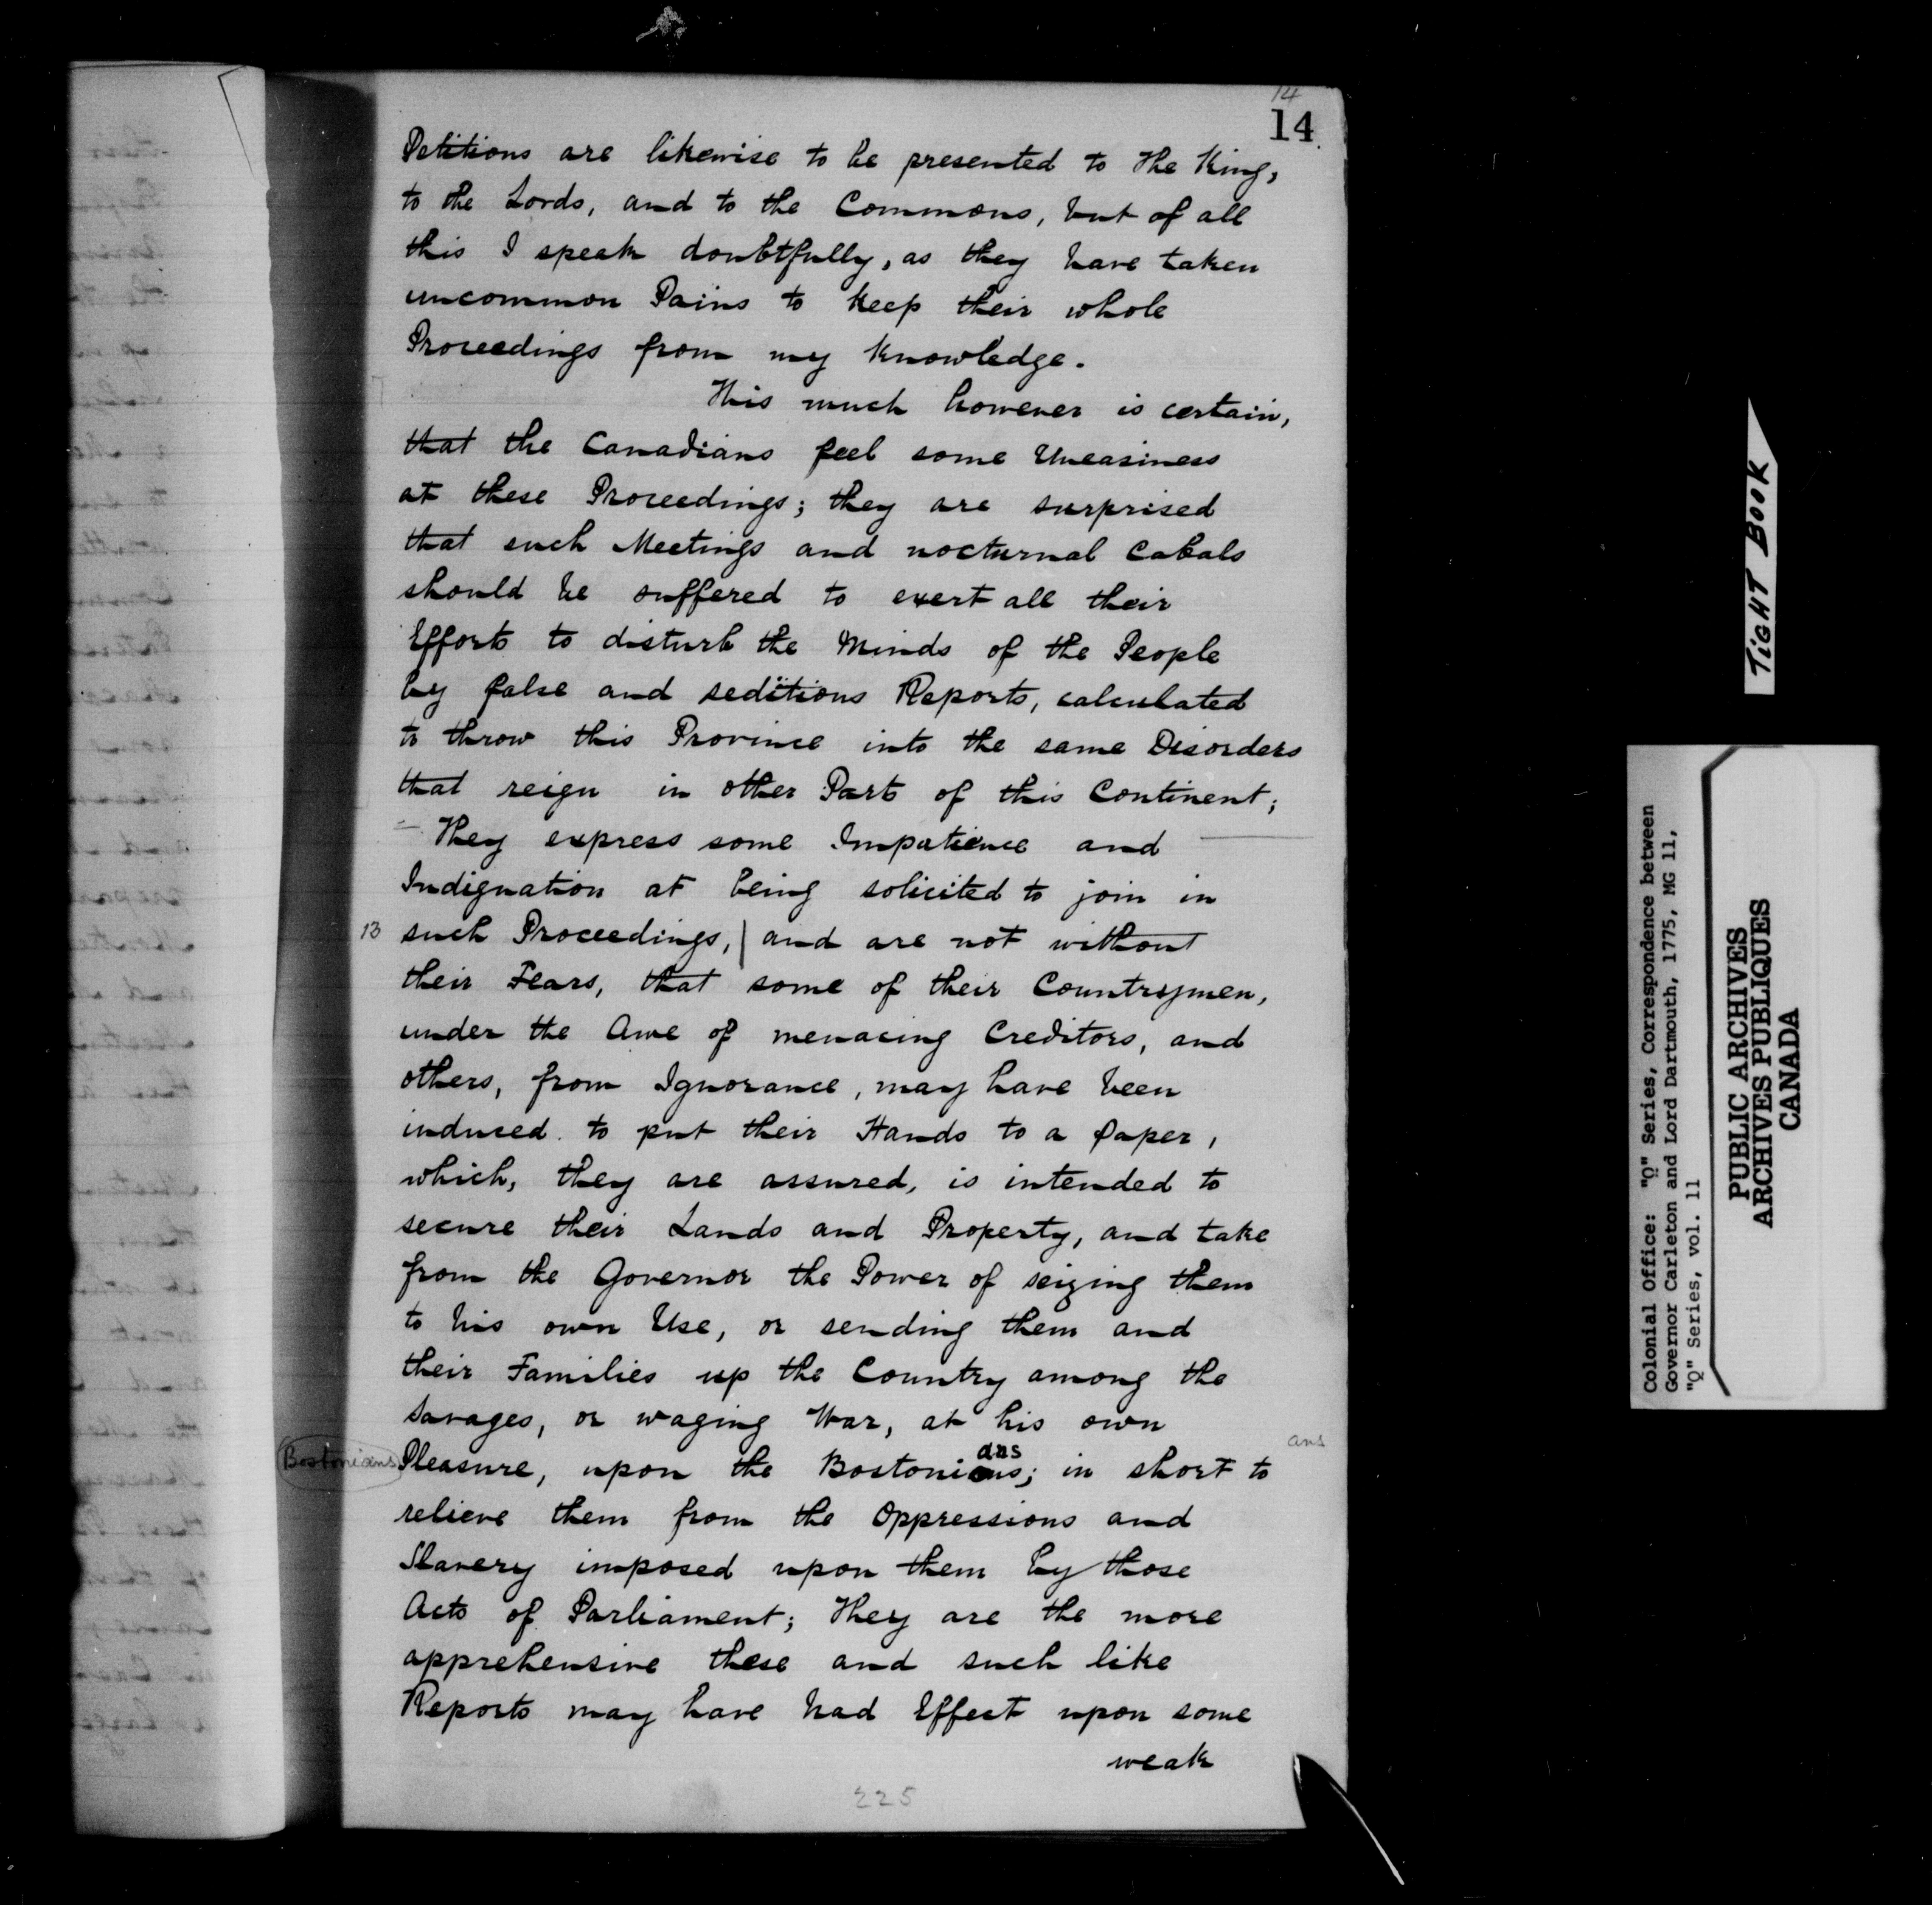 14
14
Petitions are likewise to be presented to the King,
to the Lords, and to the Commons, but of all
this I speak doubtfully, as they have taken
uncommon Pains to keep their whole
Proceedings from my knowledge.
This much however is certain,
that the Canadians feel some Uneasiness
at these Proceedings; they are surprised
that such Meetings and nocturnal Cabals
should be suffered to exert all their
Efforts to disturb the Minds of the People
by false and seditious Reports, calculated
to throw this Province into the same Disorders
that reign in other Parts of this Continent;
They express some Impatience and
Indignation at being solicited to join in
13 such Proceedings, | and are not without
their Fears, that some of their Countrymen,
under the Awe of menacing Creditors, and
others, from Ignorance, may have been
induced to put their Hands to a paper,
which, they are assured, is intended to
secure their Lands and Property, and take
from the Governor the Power of seizing them
to his own Use, or sending them and
their Families up the Country among the
Savages, or waging War, at his own
ans
ans
Bostonians Pleasure, upon the Bostonians; in short to
relieve them from the Oppressions and
Slavery imposed upon them by those
Acts of Parliament; They are the more
apprehensive these and such like
Reports may have had Effect upon some
weak
225
TIGHT BOOK
Colonial Office: "Q" Series, Correspondence between
Governor Carleton and Lord Dartmouth, 1775, MG 11,
"Q" Series, vol. 11
PUBLIC ARCHIVES
ARCHIVES PUBLIQUES
CANADA